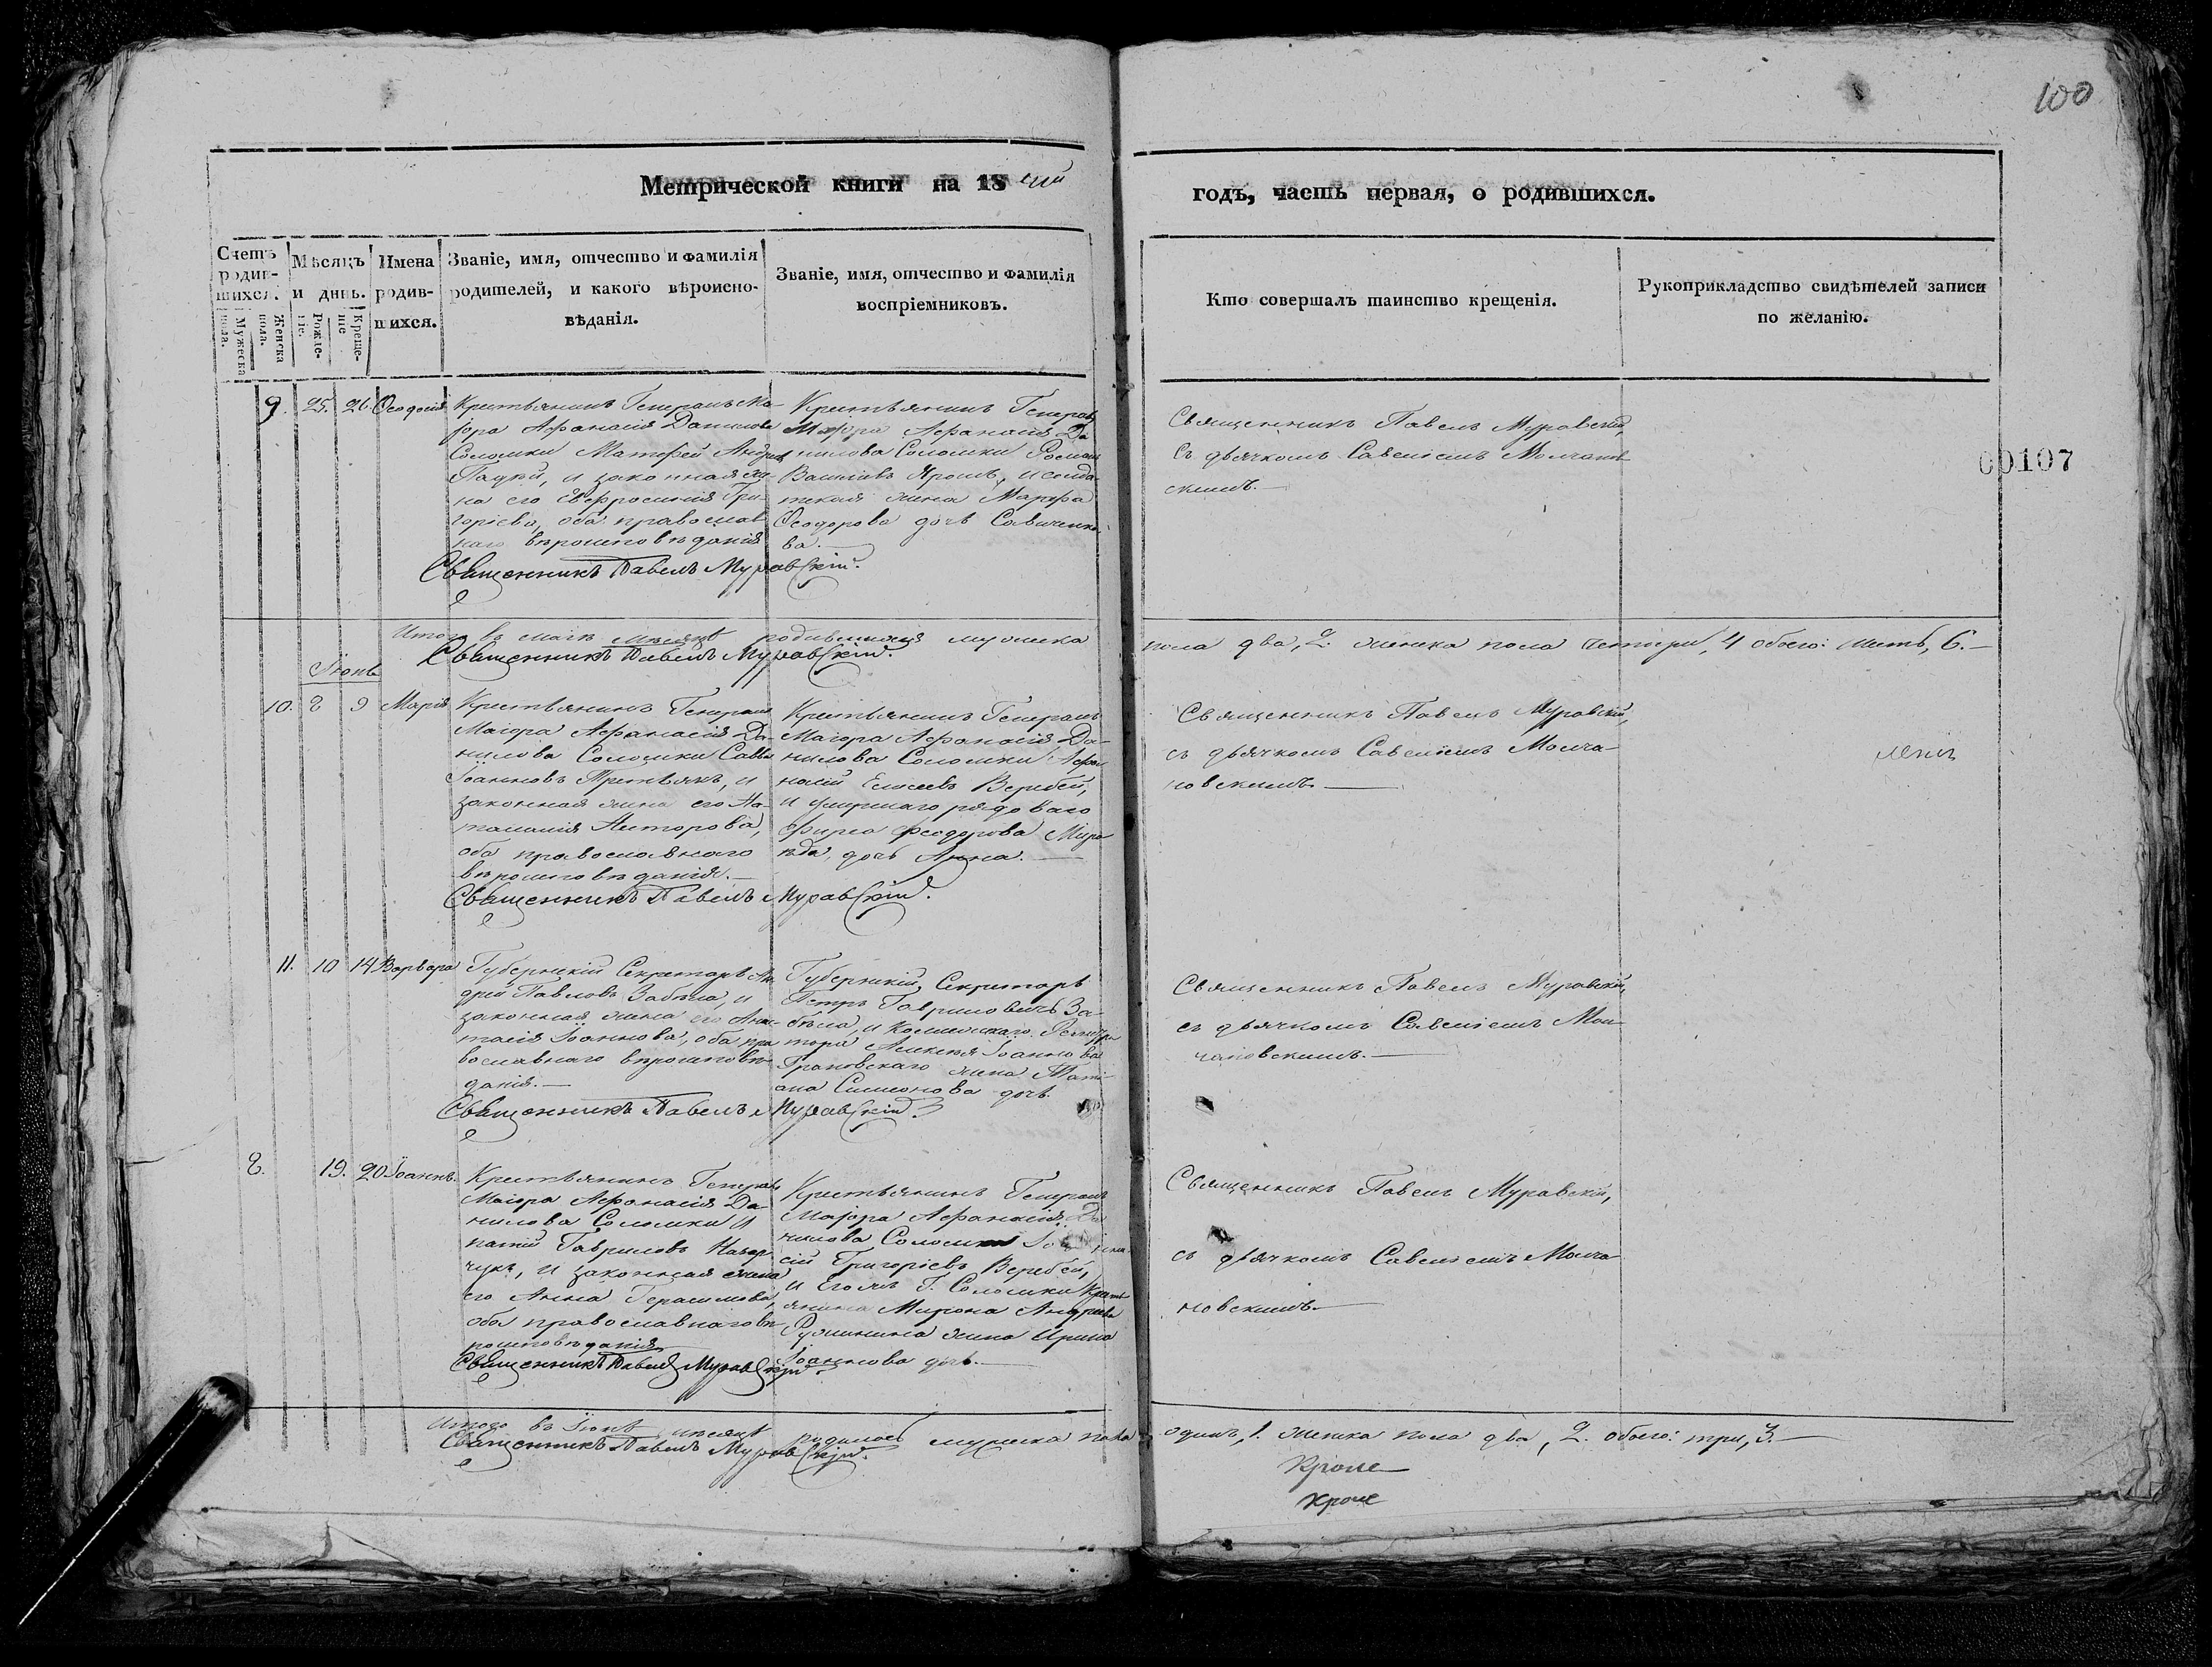 100
Метрической книги на 18
годъ, часть первая, о родившихся.
Счетъ родившихся.
Мужеска пола.
Женска пола.
Мѣсяцъ и день.
Рожденіе.
Крещеніе
Имена родившихся.
Званіе, имя, отчество и фамилія
родителей, и какого вѣроиспо-
вѣданія.
Званіе, имя, отчество и фамилія
воспріемниковъ.
Кто совершалъ таинство крещенія.
Рукоприкладство свидѣтелей записи
по желанію.
9. 25. 26. Ѳеодосія
Крестьянинъ Генералъ Ма-
іора Афанасія Данилова
Соломки Матфей Андреевъ
и законная же-
на его Евфросинія Гри-
горіева, оба православ
наго вѣроисповѣданія
Священникъ Павелъ Муравскій.
Крестьянинъ Генералъ
Маіора Афанасія Да
нилова Соломки Романъ
Василіевъ Ярошъ, и солда-
тская жена Марфа
Ѳеодорова дочь Савиченко-
ва.
Священникъ Павелъ Муравскій,
съ дьячкомъ Савеліемъ Молчанов
скимъ.
00107
Итого въ маіѣ мѣсяцѣ родившихся мужеска
пола два, 2. женска пола четыре, 4 обоего: шесть, 6.
Священникъ Павелъ Муравскій.
Іюнь
10. 8 9 Марія
Крестьянинъ Генералъ
Маіора Афанасія Да-
нилова Соломки Савва
Іоанновъ Третьякъ, и
законная жена его На-
талія
оба православнаго
вѣроисповѣданія.
Священникъ Павелъ Муравскій.
Крестьянинъ Генералъ
Маіора Афанасія Да-
нилова Соломки Афа
насій Елисеевъ Веребей,
и умершаго рядоваго
Феодорова
дочь Анна.
Священникъ Павелъ Муравскій,
съ дьячкомъ Савеліемъ Молча-
новскимъ
11. 10 14 Варвара
Губернскій Секретарь Ан
дрей Павловъ Забѣла, и
законная жена его Анас
тасія Іоаннова, оба пра
вославнаго вѣроисповѣ-
данія.
Священникъ Павелъ Муравскій
Губернскій Секретарь
Петръ Гавриловичъ За-
бѣла, и Коллежскаго Регистра
тора Алексѣя Іоаннова
Грановскаго жена Тати-
ана Симеонова дочь.
Священникъ Павелъ Муравскій,
съ дьячкомъ Савеліемъ Мол-
чановскимъ.
8. 19. 20 Іоаннъ.
Крестьянинъ Генералъ
Маіора Афанасія Да-
нилова Соломки И
патій Гавриловъ Назар
чукъ, и законная жена
его Анна Герасимова,
оба православнаго вѣ-
роисповѣданія
Священникъ Павелъ Муравскій.
Крестьянинъ Генералъ
Маіора Афанасія Да
нилова Соломки
сій Григоріевъ Веребей,
и Его Г. Соломки крест
янина Мирона Андреева
жена Ирина
Іоаннова дочь.
Священникъ Павелъ Муравскій,
съ дьячкомъ Савеліемъ Молча
новскимъ.
Итого въ Іюнѣ мѣсяцѣ родилось мужеска пола
одинъ, 1. женска пола два, 2. обоего: три, 3.
Священникъ Павелъ Муравскій.